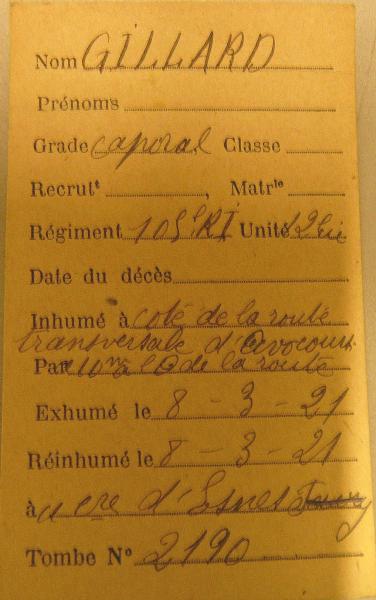 Nom GILLARD
Prénoms
Grade caporal Classe
Recrut^t , Matr^le
Régiment 105 RI Unité 12 Cie
Date du décès
Inhumé à coté de la route
transversale d'Avocourt
Par 10m à l'O de la route
Exhumé le 8 - 3 - 21
Réinhumé le 8 - 3 - 21
à cre d'Esnes
Tombe N° 2190